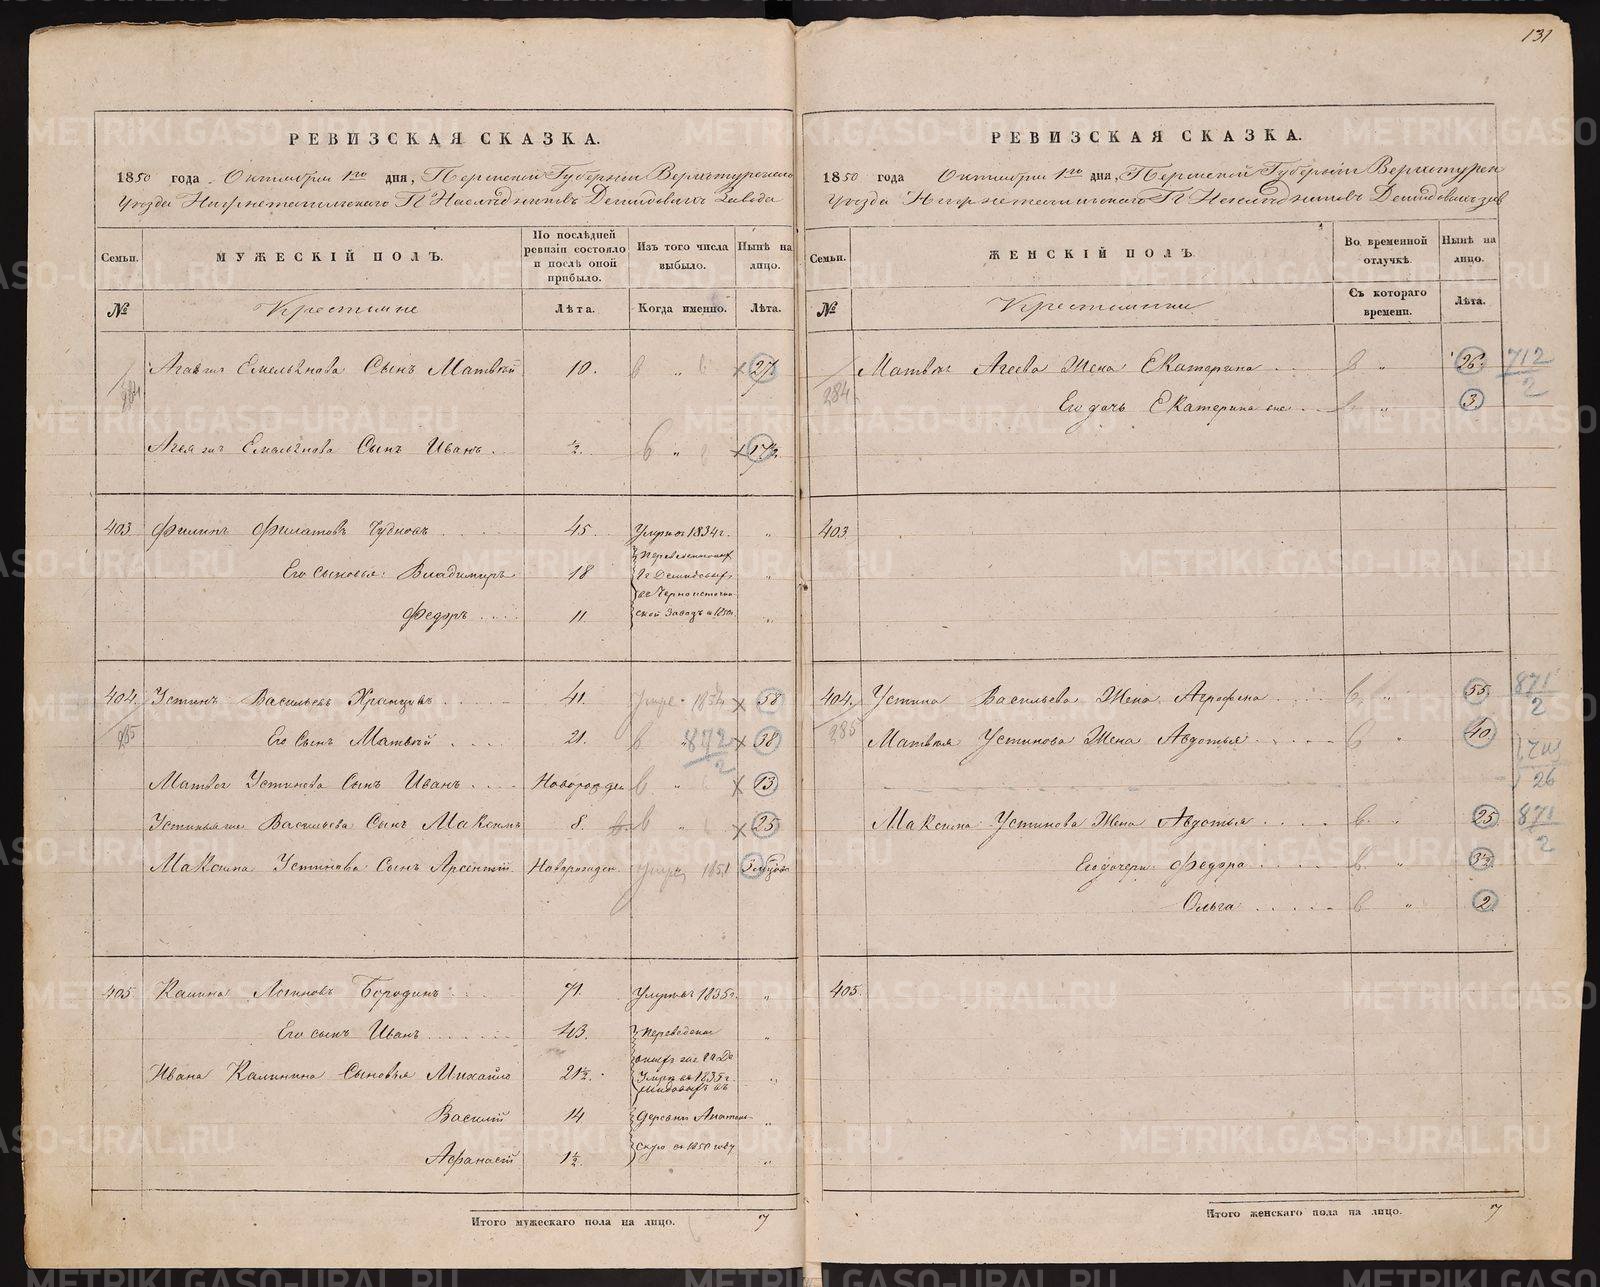 131
РЕВИЗСКАЯ СКАЗКА.
1850 года Октября 1го дня, Пермской Губернии Верхотурскаго
Уезда Нижнетагильскаго Гг Наследниковъ Демидовыхъ Завода
Семьи.
МУЖЕСКІЙ ПОЛЪ.
По послѣдней ревизіи состояло и послѣ оной прибыло.
Изъ того числа выбыло.
Нынѣ на лицо.
№
Крестьяне
Лѣта.
Когда именно.
Лѣта.
284
Сынъ Матвѣй 10. 27
Сынъ Иванъ ½. 17½
403 Филипъ Филатовъ Чудновъ 45. Умеръ 1834 г. "
Его сыновья: Владимиръ 18 "
Федоръ 11 "
404. Устинъ Васильевъ Храмцовъ 41. умре 1854 58
285 Его Сынъ Матвѣй 21. 872/2 38
Матвея Устинова Сынъ Иванъ Новорожден 13
Васильева Сынъ Максимъ 8. 25
Максима Устинова Сынъ Арсентій Новорожден. 1851
405. Калина Логиновъ Бородинъ 71. Умеръ 1835 г. "
Его сынъ Иванъ 43. "
Ивана Калинина Сыновья Михайло 21½. Умре въ 1835 г. "
Василій 14 деревню "
Афанасій 1½ "
Итого мужескаго пола на лицо. 7
РЕВИЗСКАЯ СКАЗКА.
1850 года Октября 1го дня, Пермской Губерніи Верхотурск
Уезда Нижнетагильскаго Гг Наследниковъ Демидовыхъ зав
Семьи.
ЖЕНСКІЙ ПОЛЪ
Во временной отлучкѣ.
Нынѣ на лицо.
№
Крестьянки
Съ котораго времени.
Лѣта.
Матвея Агеева Жена Екатерина 26. 712/2
284 Его дочь Екатерина 3.
403
404. Устина Васильева Жена Агрофена 55. 871/2
285 Матвея Устинова Жена Авдотья 40.
26
Максима Устинова Жена Авдотья 25 871/2
Его дочери Федора 3½
Ольга 2
405.
Итого женскаго пола на лицо. 7
METRIKI.GASO-URAL.RU